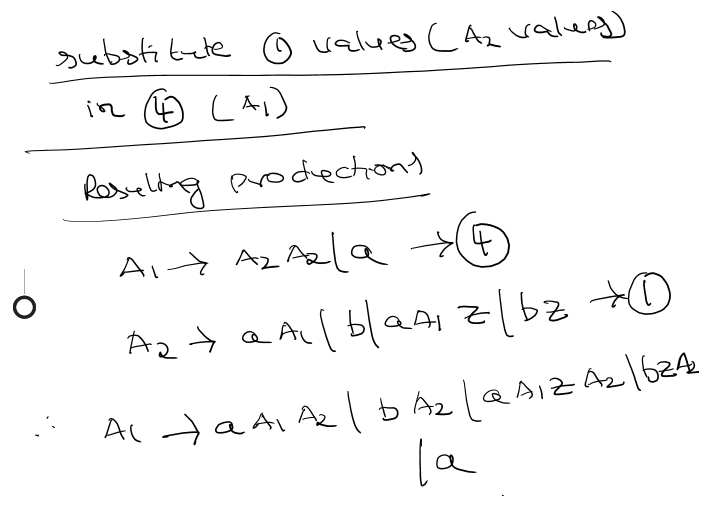 substitute ① values (A₂ values)
in ④ (A₁)
Resulting productions
A₁ → A₂ A₂ | a → ④
A₂ → a A₁ | b | a A₁ Z | bZ → ①
∴ A₁ → a A₁ A₂ | b A₂ | a A₁ Z A₂ | bZA₂
| a